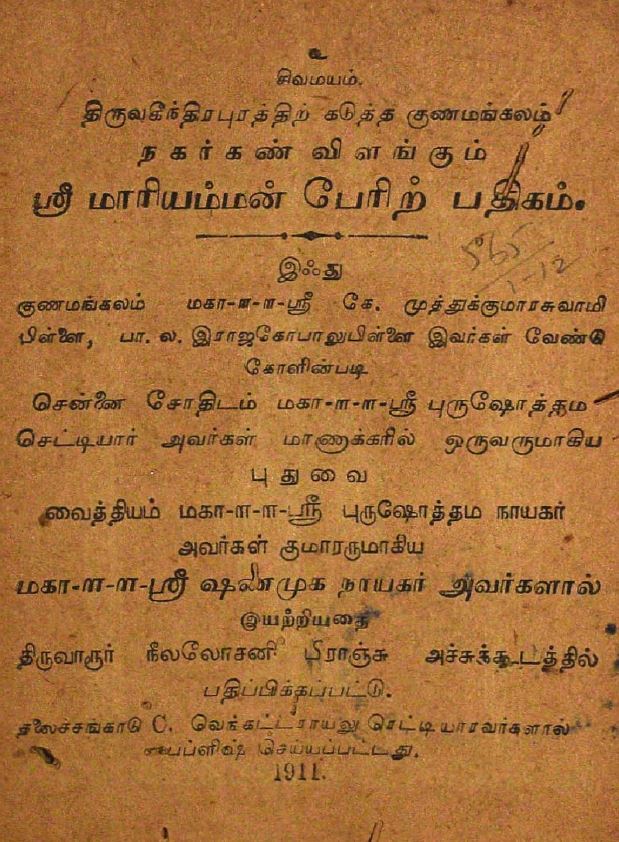 உ
சிவமயம்.
திருவகீந்திரபுரத்திற் கடுத்த குணமங்கலம்
நகர்கண் விளங்கும்
ஸ்ரீ மாரியம்மன் பேரிற் பதிகம்.
565
1-12
இஃது
குணமங்கலம் மகா-ள-ள-ஸ்ரீ கே. முத்துக்குமாரசுவாமி
பிள்ளை, பா. ல. இராஜகோபாலுபிள்ளை இவர்கள் வேண்டு
கோளின்படி
சென்னை சோதிடம் மகா-ள-ள-ஸ்ரீ புருஷோத்தம
செட்டியார் அவர்கள் மாணாக்கரில் ஒருவருமாகிய
புதுவை
வைத்தியம் மகா-ள-ள-ஸ்ரீ புருஷோத்தம நாயகர்
அவர்கள் குமாரருமாகிய
மகா-ள-ள-ஸ்ரீ ஷண்முக நாயகர் அவர்களால்
இயற்றியதை
திருவாரூர் நீலலோசனி பிராஞ்சு அச்சுக்கூடத்தில்
பதிப்பிக்தப்பட்டு.
தலைச்சங்காடு C. வெங்கட்டராயலு செட்டியாரவர்களால்
பைப்ளிஷ் செய்யப்பட்டது.
1911.